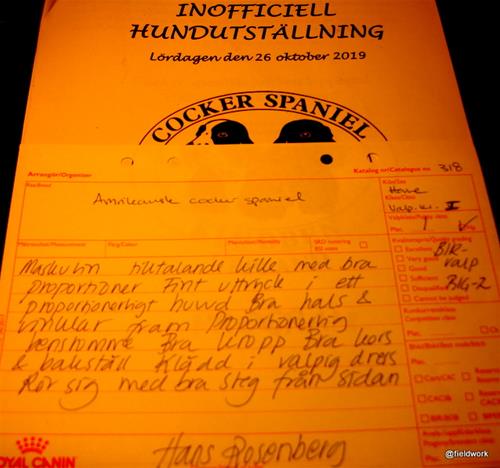 INOFFICIELL
HUNDUTSTÄLLNING
Lördagen den 26 oktober 2019
COCKER SPANIEL
Arrangör/Organizer
Katalog nr/Catalogue no 318
Ras/Breed
Amerikansk cocker spaniel
Kön/Sex
Hane
Klass/Class
Valp.kl. I
Plac. 1
Mätresultat/Measurement
Vikt/Weight
Mentalitet/Mentality
Kvalitetspris/Quality grading
Excellent
BIR-
Very good
valp
Good
Sufficient
BIG-2
Disqualified
Cannot be judged
Maskulin tilltalande kille med bra
proportioner Fint uttryck i ett
proportionerligt huvud Bra hals &
vinklar fram Proportionerlig
benstomme Bra kropp Bra kors
& bakställ Klädd i valpig dress
Rör sig med bra steg från sidan
Konkurrensklass
Competition class
Plac.
Plac.
Cert/CAC
CACIB
BIR/BOB
ROYAL CANIN
Hans Rosenberg
@fieldwork